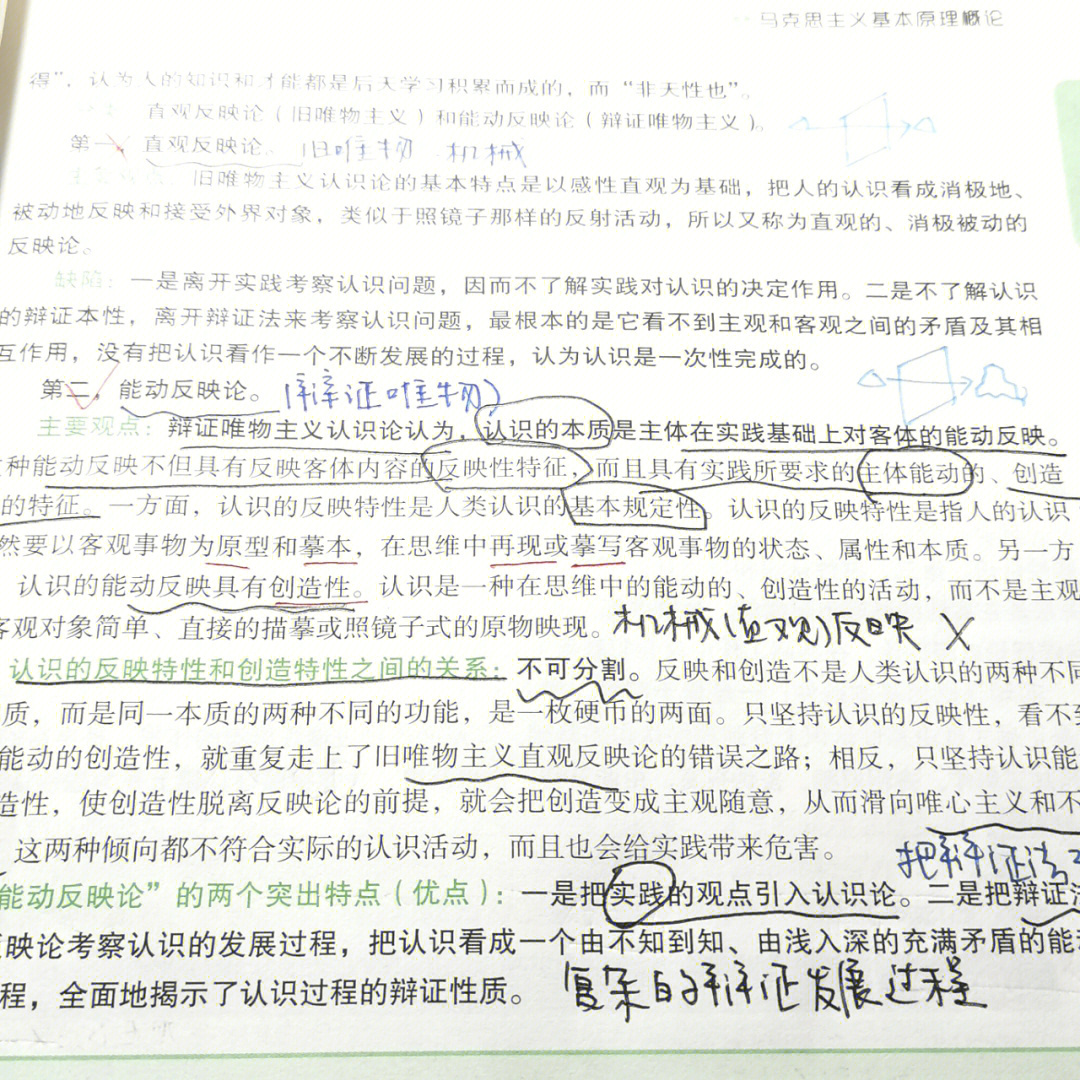 马克思主义基本原理概论
得”，认为人的知识和才能都是后天学习积累而成的，而“非天性也”。
直观反映论（旧唯物主义）和能动反映论（辩证唯物主义）。
第一，直观反映论。旧唯物 机械
主要观点：旧唯物主义认识论的基本特点是以感性直观为基础，把人的认识看成消极地、
被动地反映和接受外界对象，类似于照镜子那样的反射活动，所以又称为直观的、消极被动的
反映论。
缺陷：一是离开实践考察认识问题，因而不了解实践对认识的决定作用。二是不了解认识
的辩证本性，离开辩证法来考察认识问题，最根本的是它看不到主观和客观之间的矛盾及其相
互作用，没有把认识看作一个不断发展的过程，认为认识是一次性完成的。
第二，能动反映论。（辩证唯物）
主要观点：辩证唯物主义认识论认为，认识的本质是主体在实践基础上对客体的能动反映。
种能动反映不但具有反映客体内容的反映性特征，而且具有实践所要求的主体能动的、创造
的特征。一方面，认识的反映特性是人类认识的基本规定性。认识的反映特性是指人的认识
然要以客观事物为原型和摹本，在思维中再现或摹写客观事物的状态、属性和本质。另一方
认识的能动反映具有创造性。认识是一种在思维中的能动的、创造性的活动，而不是主观
客观对象简单、直接的描摹或照镜子式的原物映现。机械（直观）反映 X
认识的反映特性和创造特性之间的关系：不可分割。反映和创造不是人类认识的两种不同
质，而是同一本质的两种不同的功能，是一枚硬币的两面。只坚持认识的反映性，看不到
能动的创造性，就重复走上了旧唯物主义直观反映论的错误之路；相反，只坚持认识能
造性，使创造性脱离反映论的前提，就会把创造变成主观随意，从而滑向唯心主义和不
这两种倾向都不符合实际的认识活动，而且也会给实践带来危害。
把辩证法
能动反映论”的两个突出特点（优点）：一是把实践的观点引入认识论。二是把辩证法
映论考察认识的发展过程，把认识看成一个由不知到知、由浅入深的充满矛盾的能动
程，全面地揭示了认识过程的辩证性质。 复杂的辩证发展过程